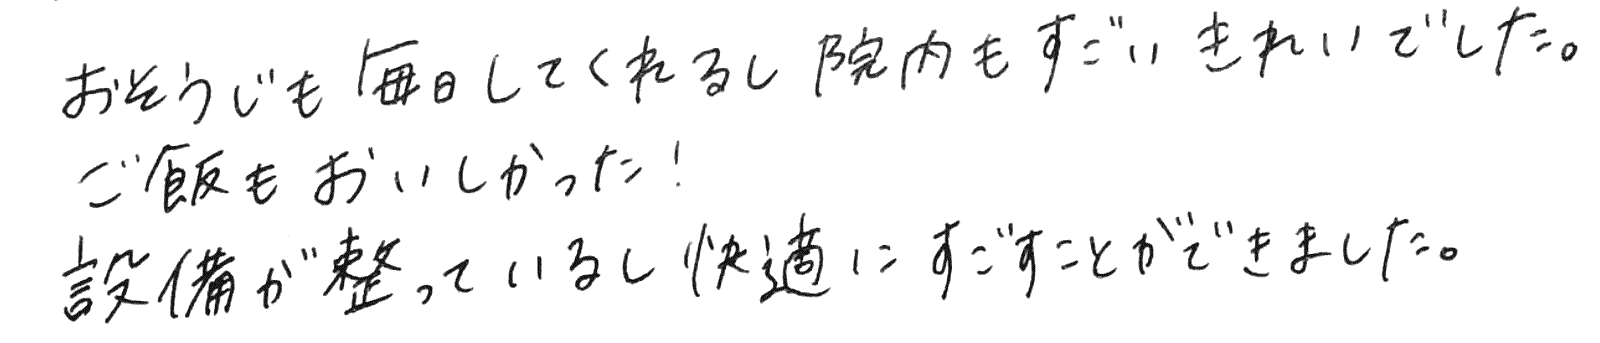 おそうじも毎日してくれるし院内もすごいきれいでした。
ご飯もおいしかった!
設備が整っているし快適にすごすことができました。